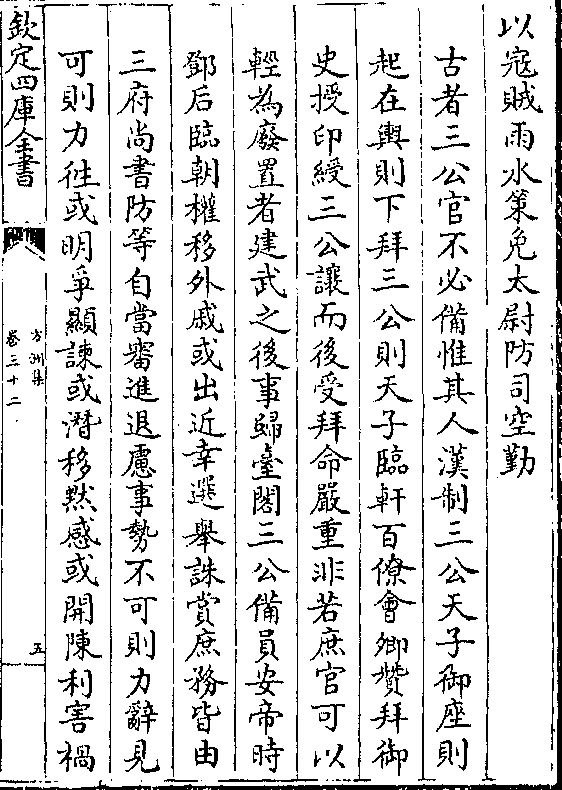 以寇賊雨水策免太尉防司空勤
古者三公官不必備惟其人漢制三公天子御座則
起在輿則下拜三公則天子臨軒百僚會卿贊拜御
史授印綬三公讓而後受拜命嚴重非若庶官可以
輕為廢置者建武之後事歸臺閣三公備員安帝時
鄧后臨朝權移外戚或出近幸選舉誅賞庶務皆由
三府尚書防等自當審進退慮事勢不可則力辭見
可則力徃或明爭顯諫或潛移黙感或開陳利害禍
欽定四庫全書
方洲集
卷三十二
五